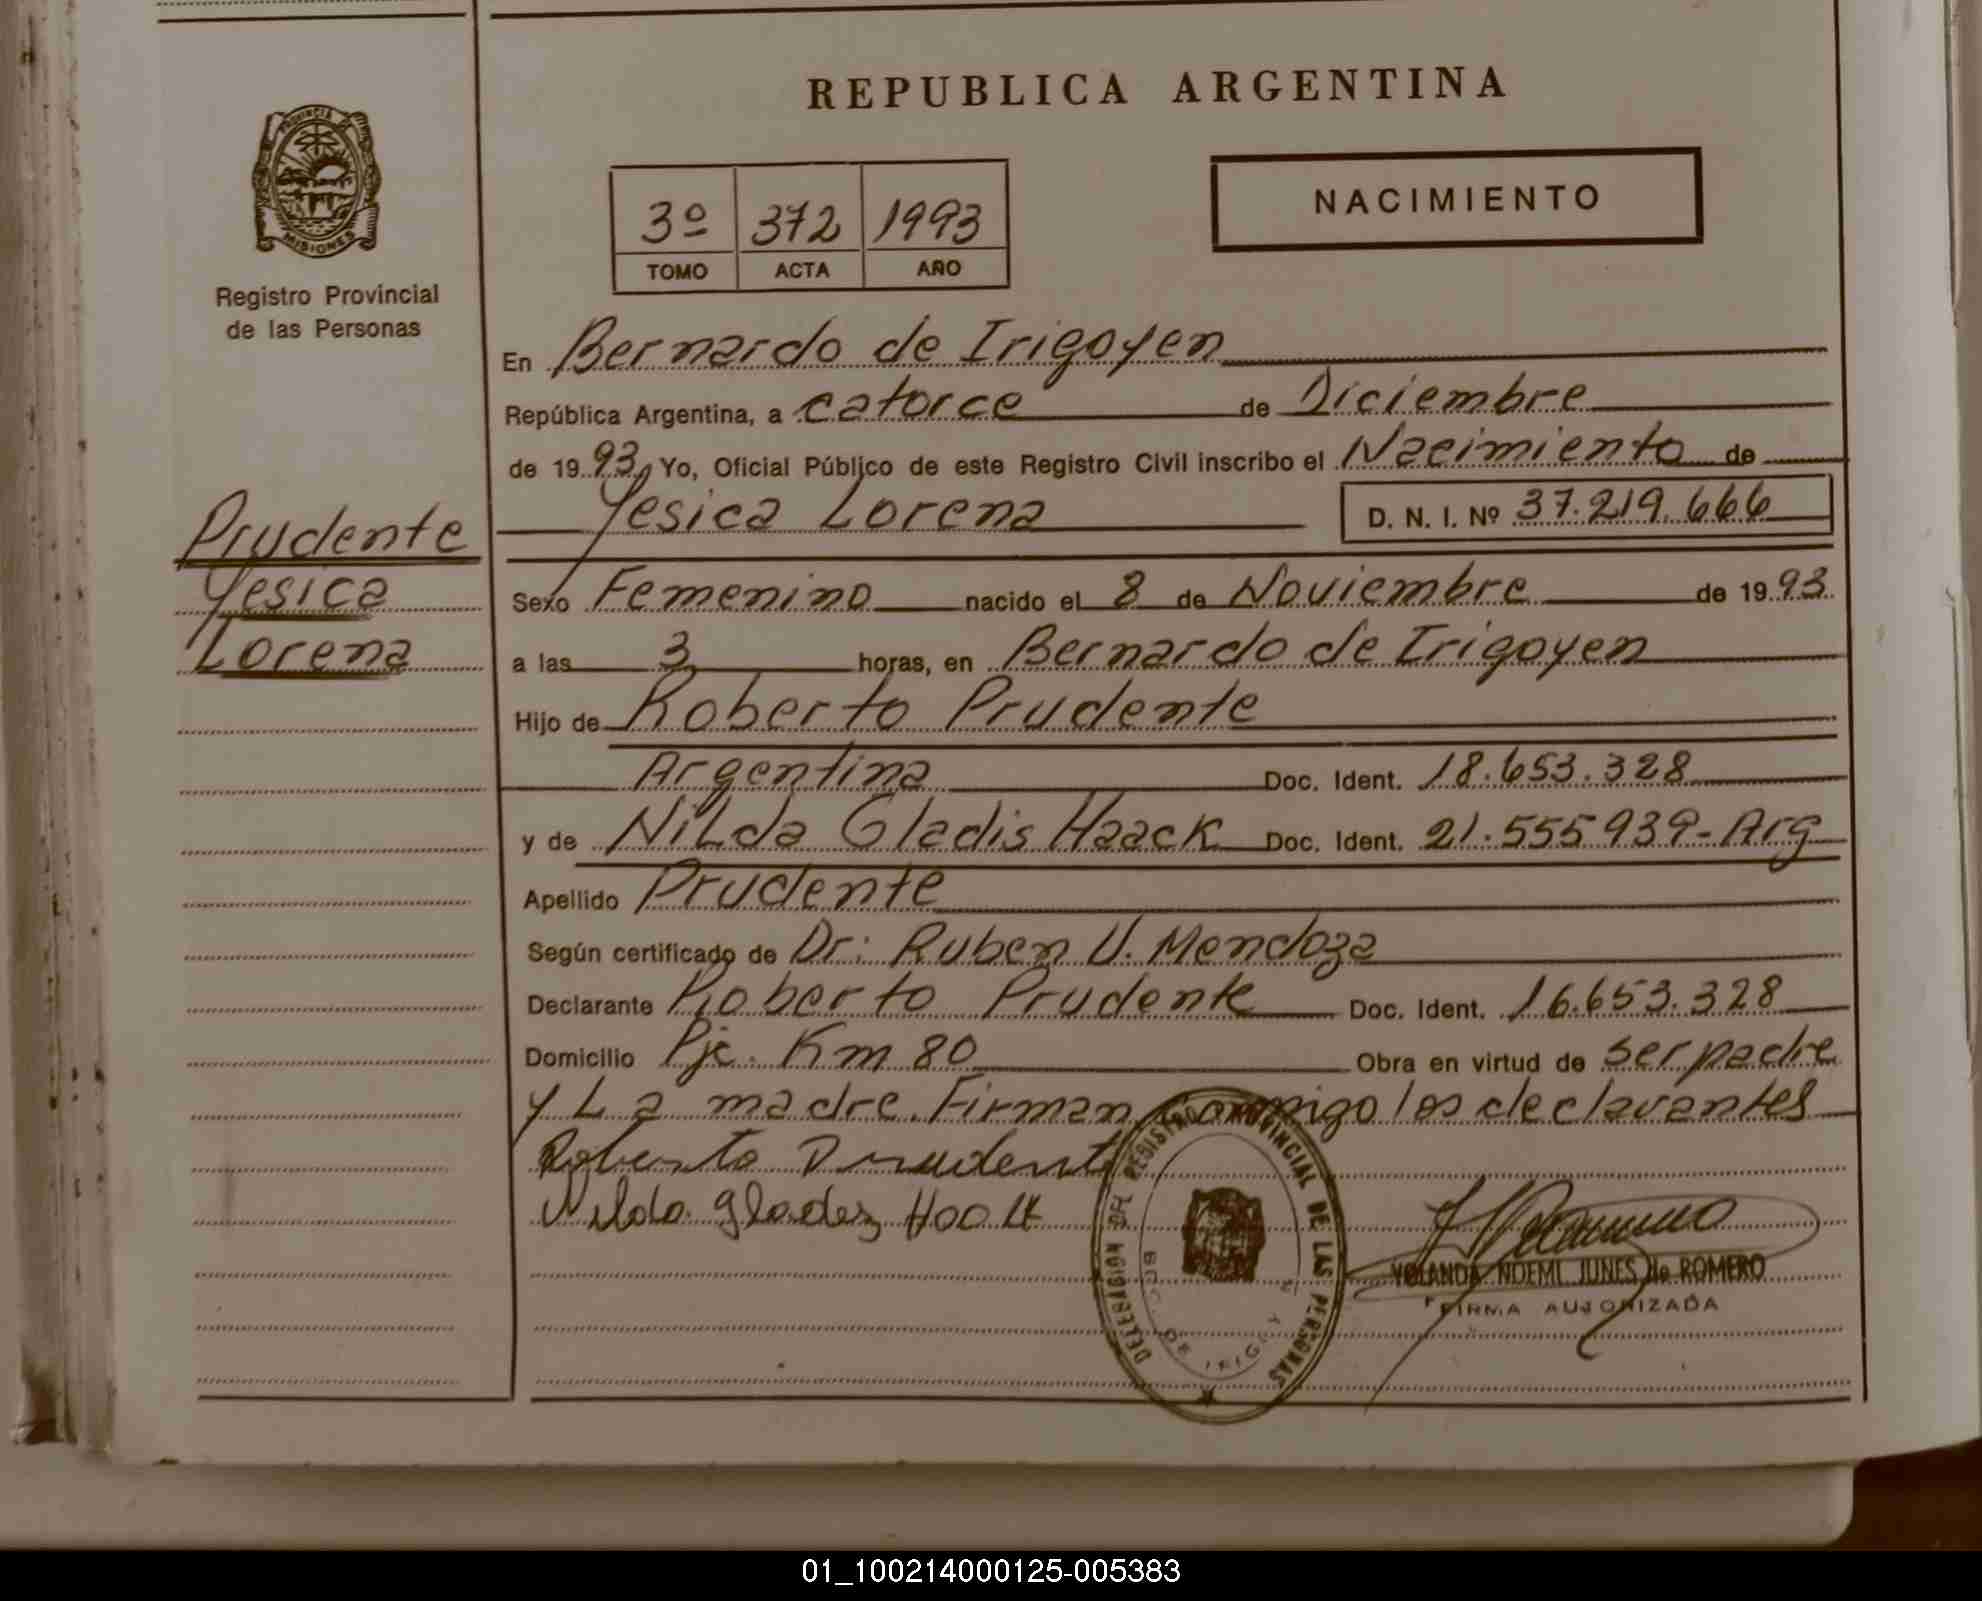 REPUBLICA ARGENTINA
PROVINCIA DE
MISIONES
Registro Provincial
de las Personas
NACIMIENTO
3º 372 1993
TOMO ACTA AÑO
En Bernardo de Irigoyen
República Argentina, a catorce de Diciembre
de 1993 Yo, Oficial Público de este Registro Civil inscribo el Nacimiento de
Yesica Lorena D. N. I. Nº 37.219.666
Prudente
Yesica
Lorena
Sexo Femenino nacido el 8 de Noviembre de 1993
a las 3 horas, en Bernardo de Irigoyen
Hijo de Roberto Prudente
Argentina Doc. Ident. 18.653.328
y de Nilda Gladis Haack Doc. Ident. 21.555939-Arg
Apellido Prudente
Según certificado de Dr: Ruben U. Mendoza
Declarante Roberto Prudente Doc. Ident. 16.653.328
Domicilio Pje. Km 80 Obra en virtud de ser padre
y La madre. Firman conmigo los declarantes
Roberto Prudente
DELEGACION DEL REGISTRO PROVINCIAL DE LAS PERSONAS
YOLANDA NOEMI JUNES de ROMERO
FIRMA AUTORIZADA
01_100214000125-005383